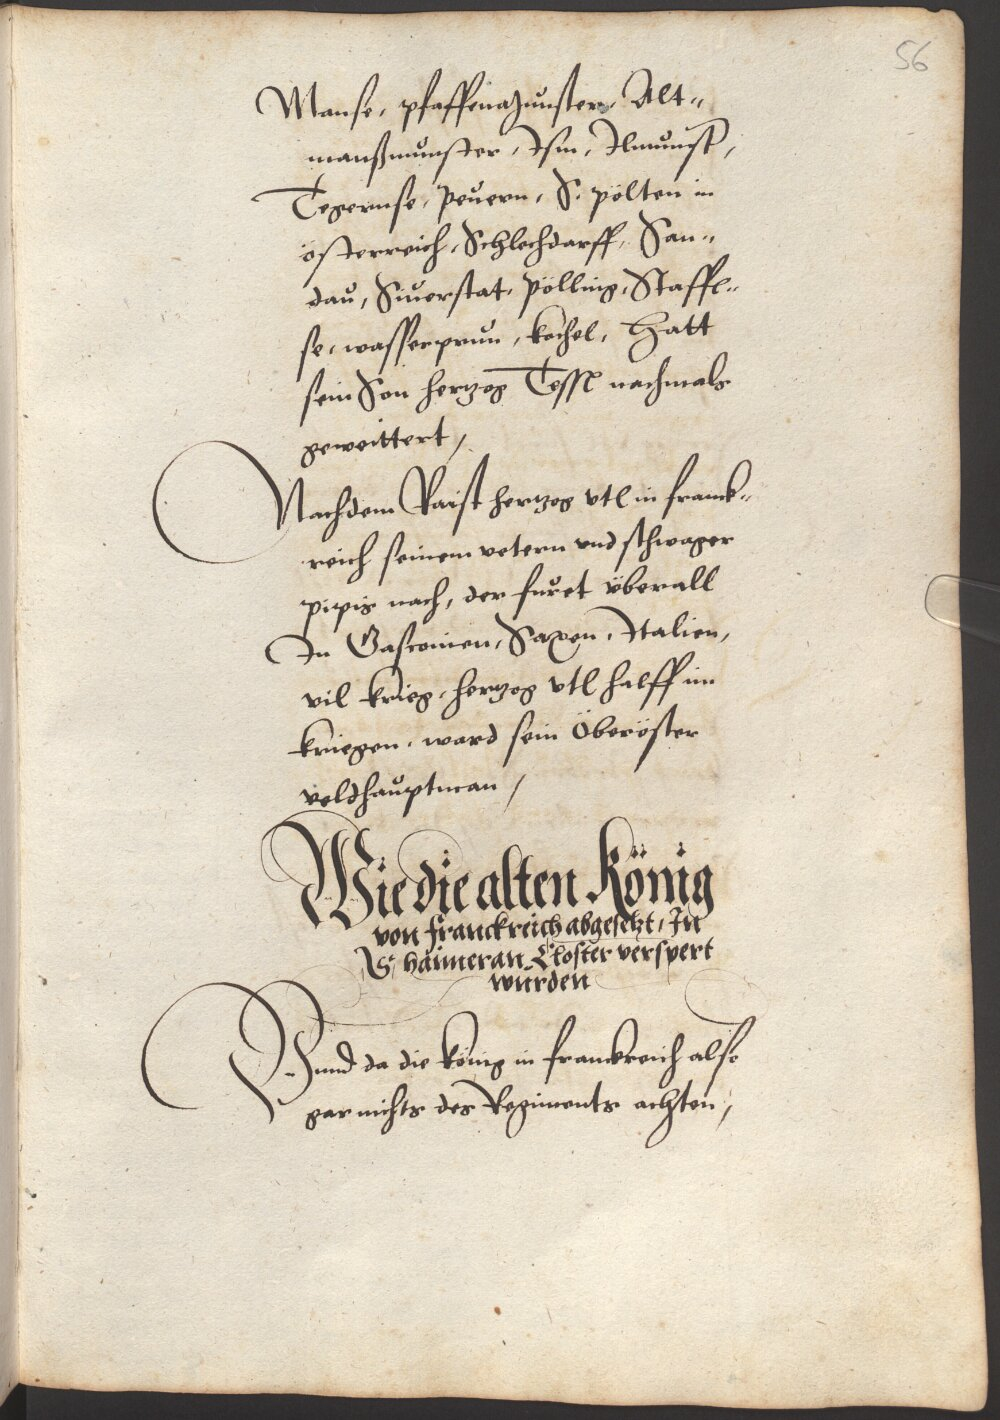 56
Manse, pfaffenazunster, Alt„
manßmunster, Isin, Ilmunst,
Tegernse, peuern, S. pölten in
österreich, Schlechdarff, San„
dau, Siverstat, pölling, Staffl„
se, wasserprun, kochel, Hatt
sein Son hertzog Tessl nachmals
geweittert,
Nachdem Raist hertzog vtl in franck„
reich seinem vetern vnd schwager
pipis nach, der furet vberall
In Gasconien, Saxen, Italien,
vil krieg, hertzog vtl halff im
kriegen, ward sein Oberöster
veldhauptman,
Wie die alten König
von franckreich abgesetzt, In
S. haimeran Closter verspert
wurden
Vnnd da die könig in franckreich also
gar nichts des Regiments achten,